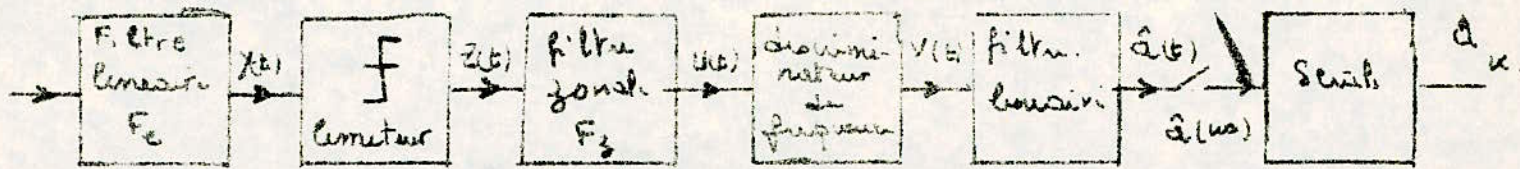 Filtre
lineaire
F_e
y(t)
limiteur
Z(t)
filtre
zonal
F_z
U(t)
discrimi-
nateur
de
frequence
V(t)
filtre
lineaire
â(t)
Seuils
â_k